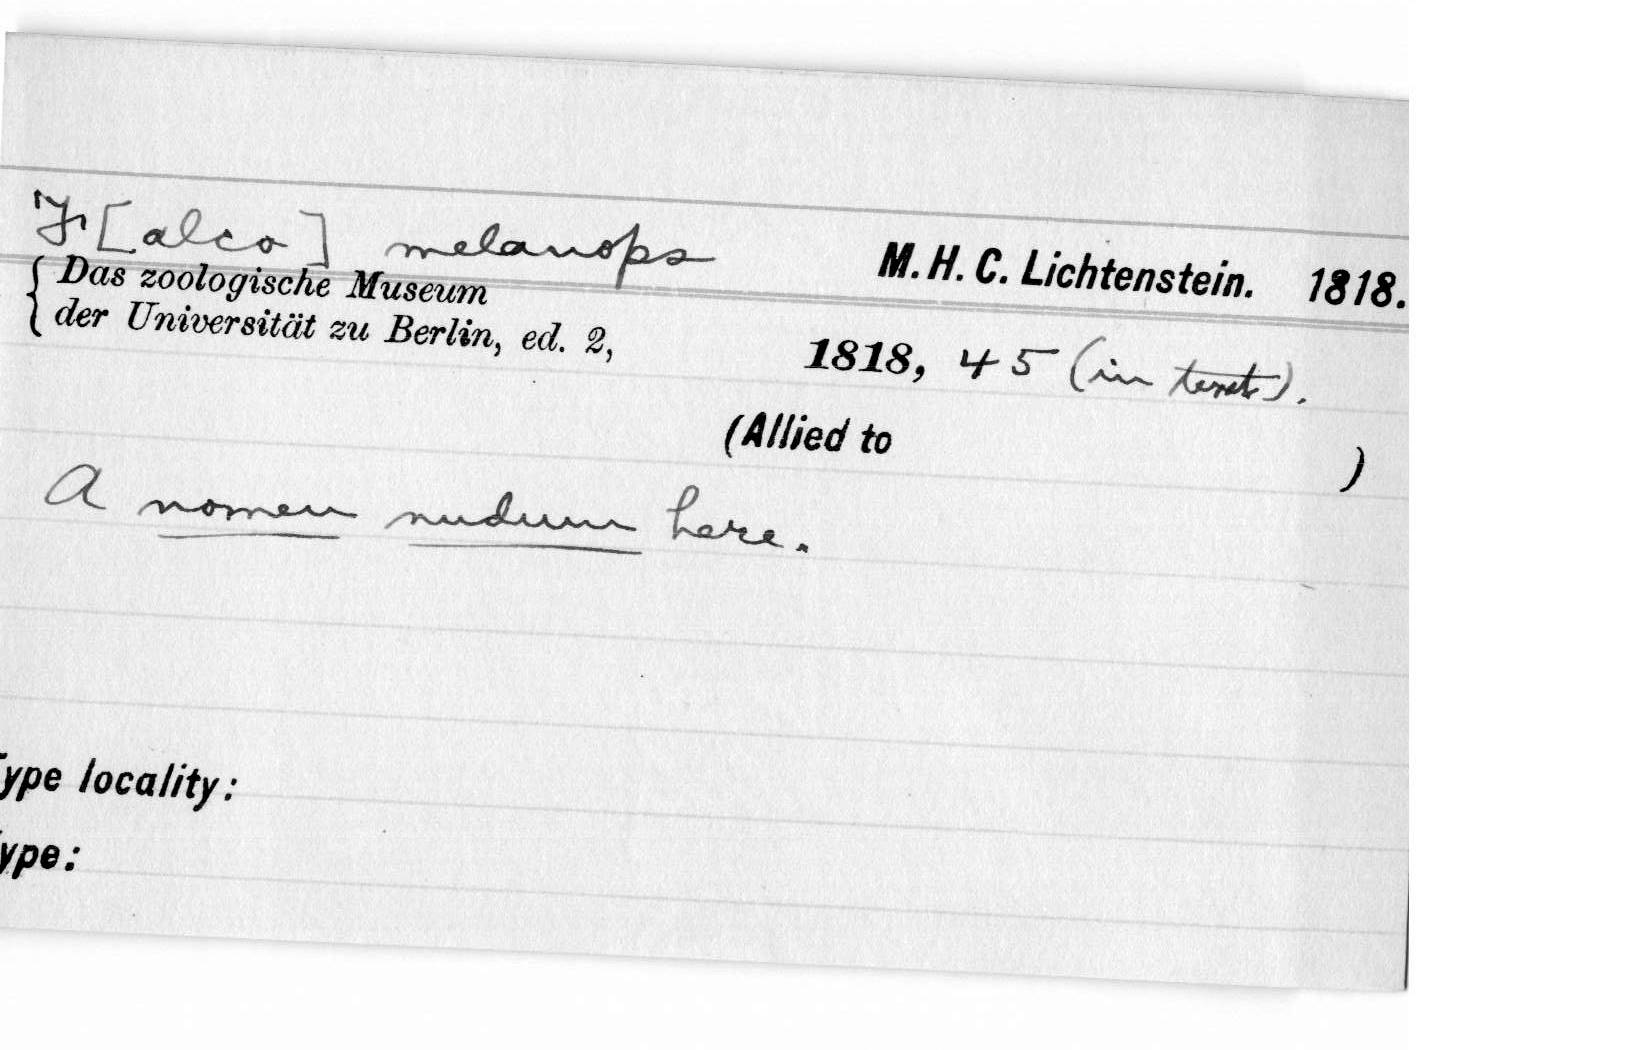 F[alco] melanops M.H.C. Lichtenstein. 1818.
Das zoologische Museum
der Universität zu Berlin, ed. 2, 1818, 45 (in text).
(Allied to )
A nomen nudum here.
Type locality:
Type: